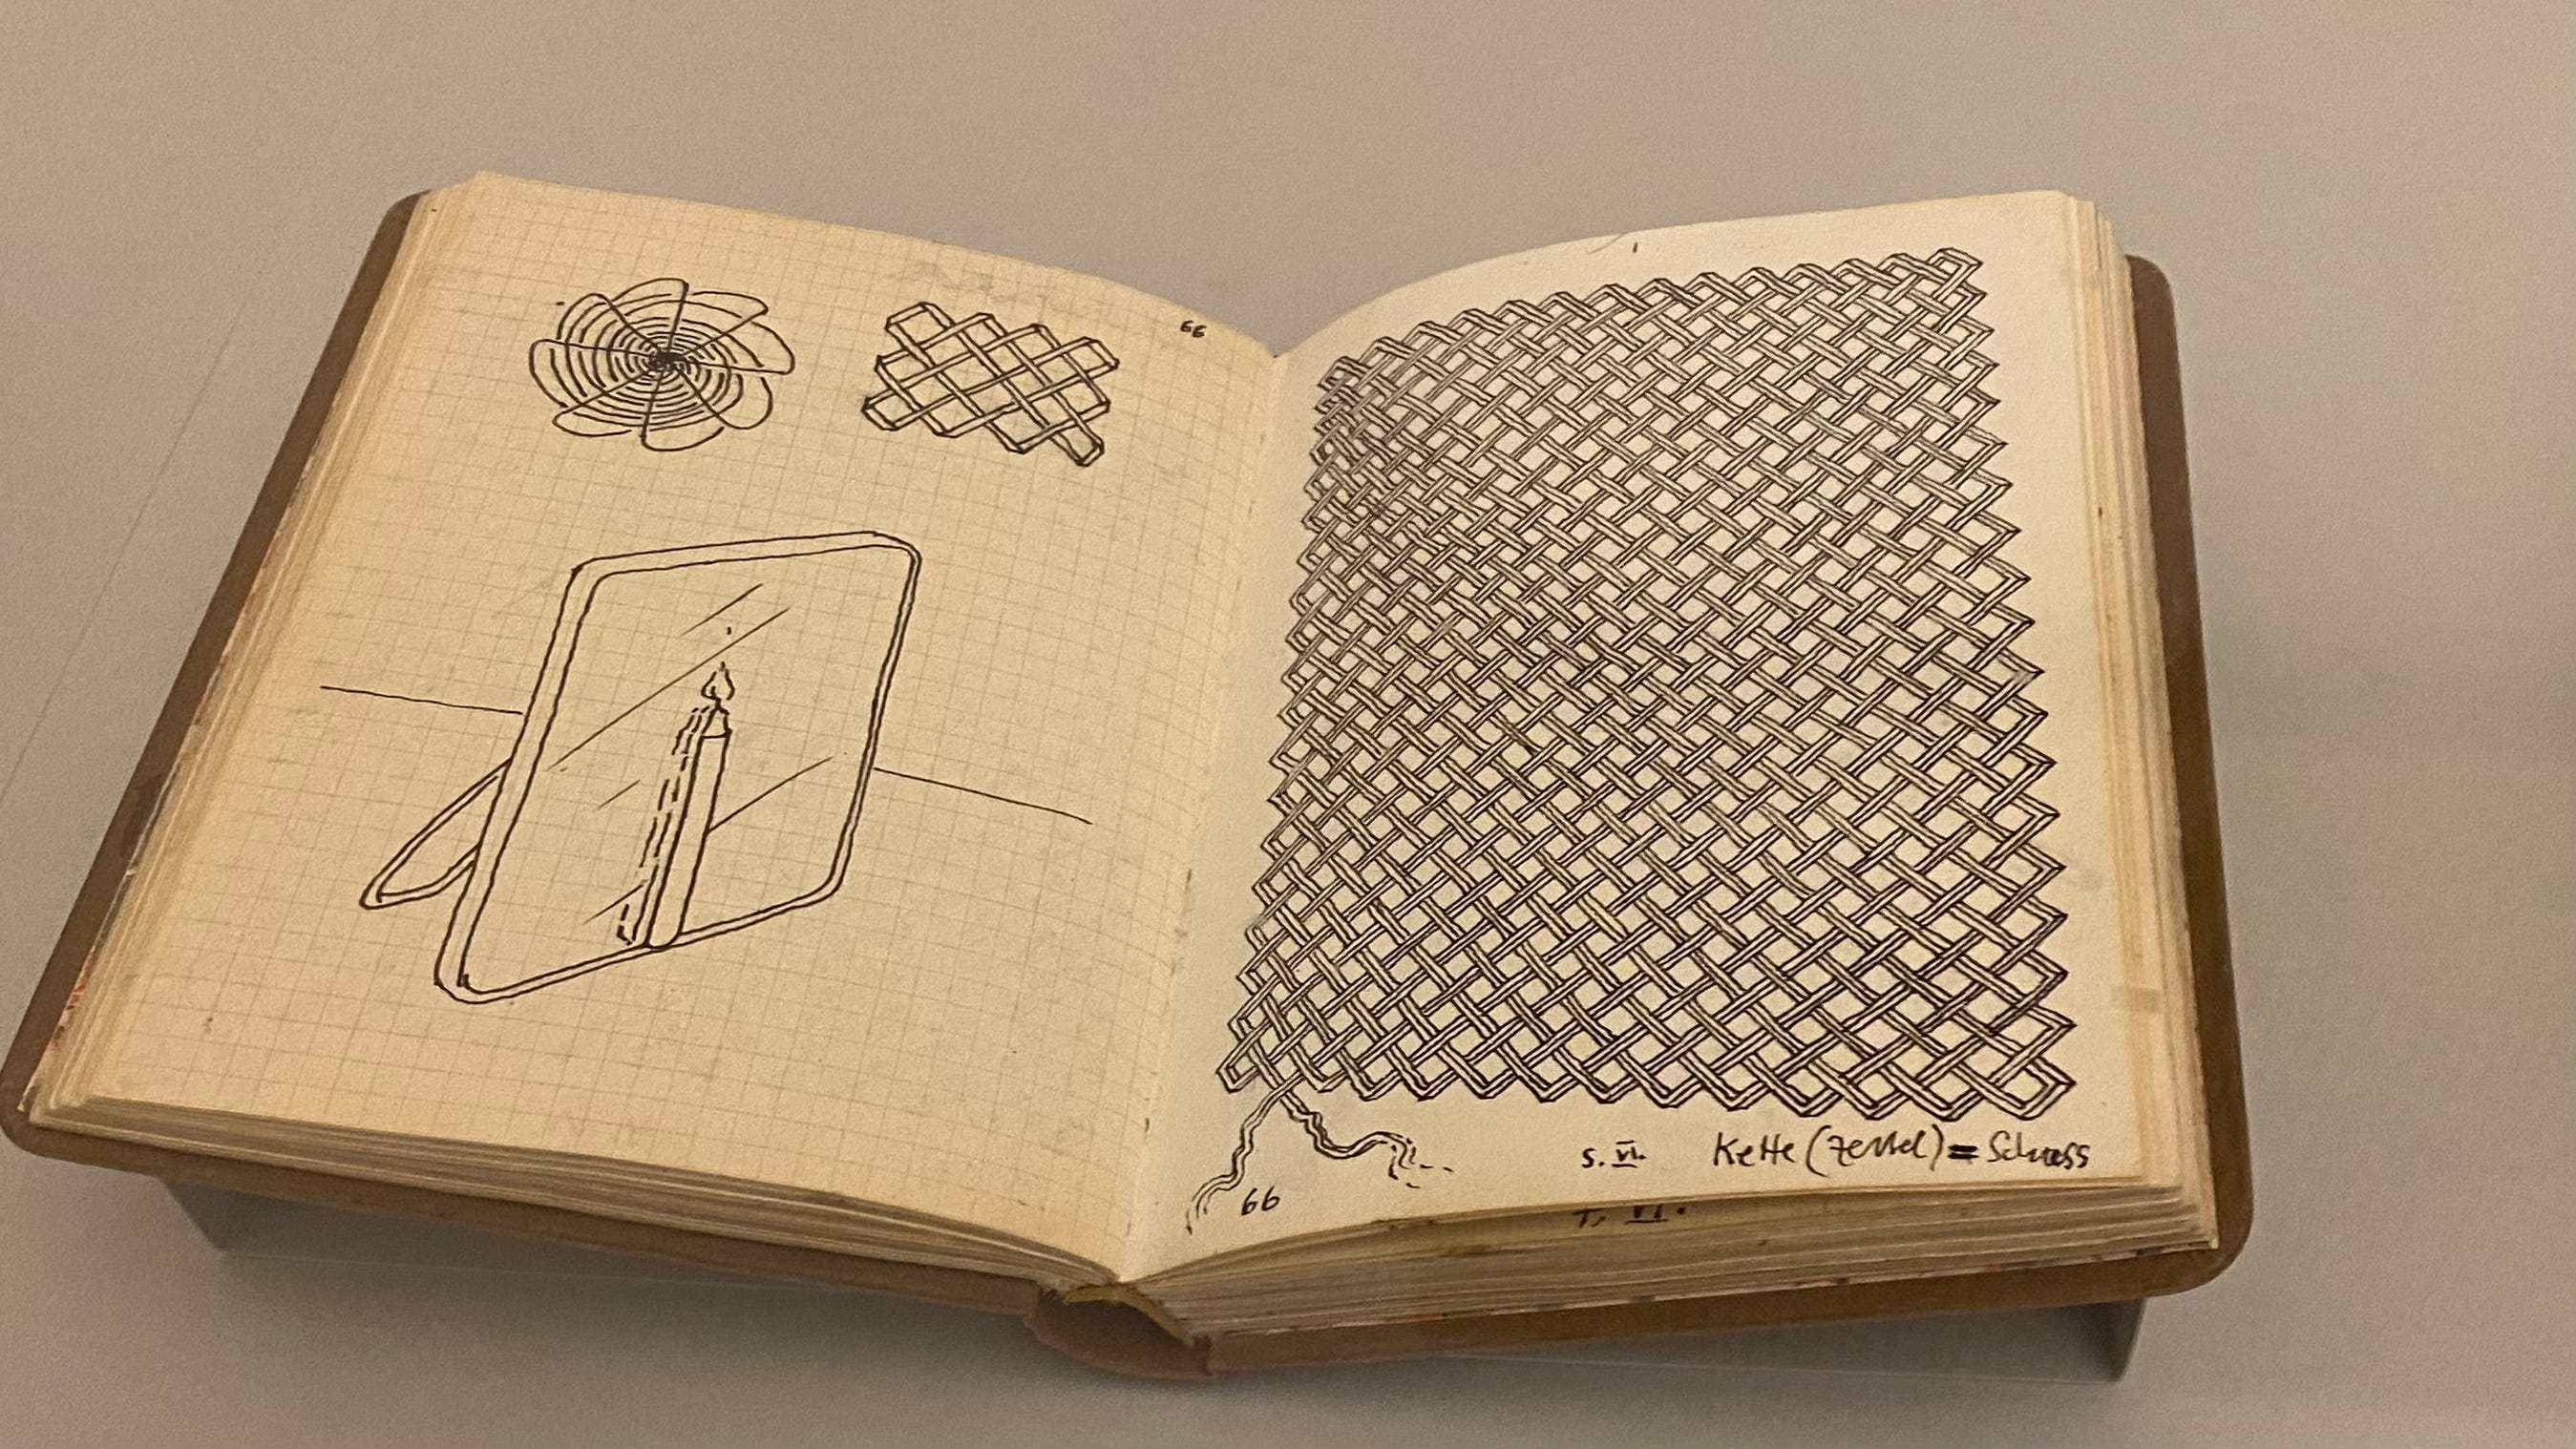 66
s. VI. Kette (Zettel) = Schuss
66
VI.